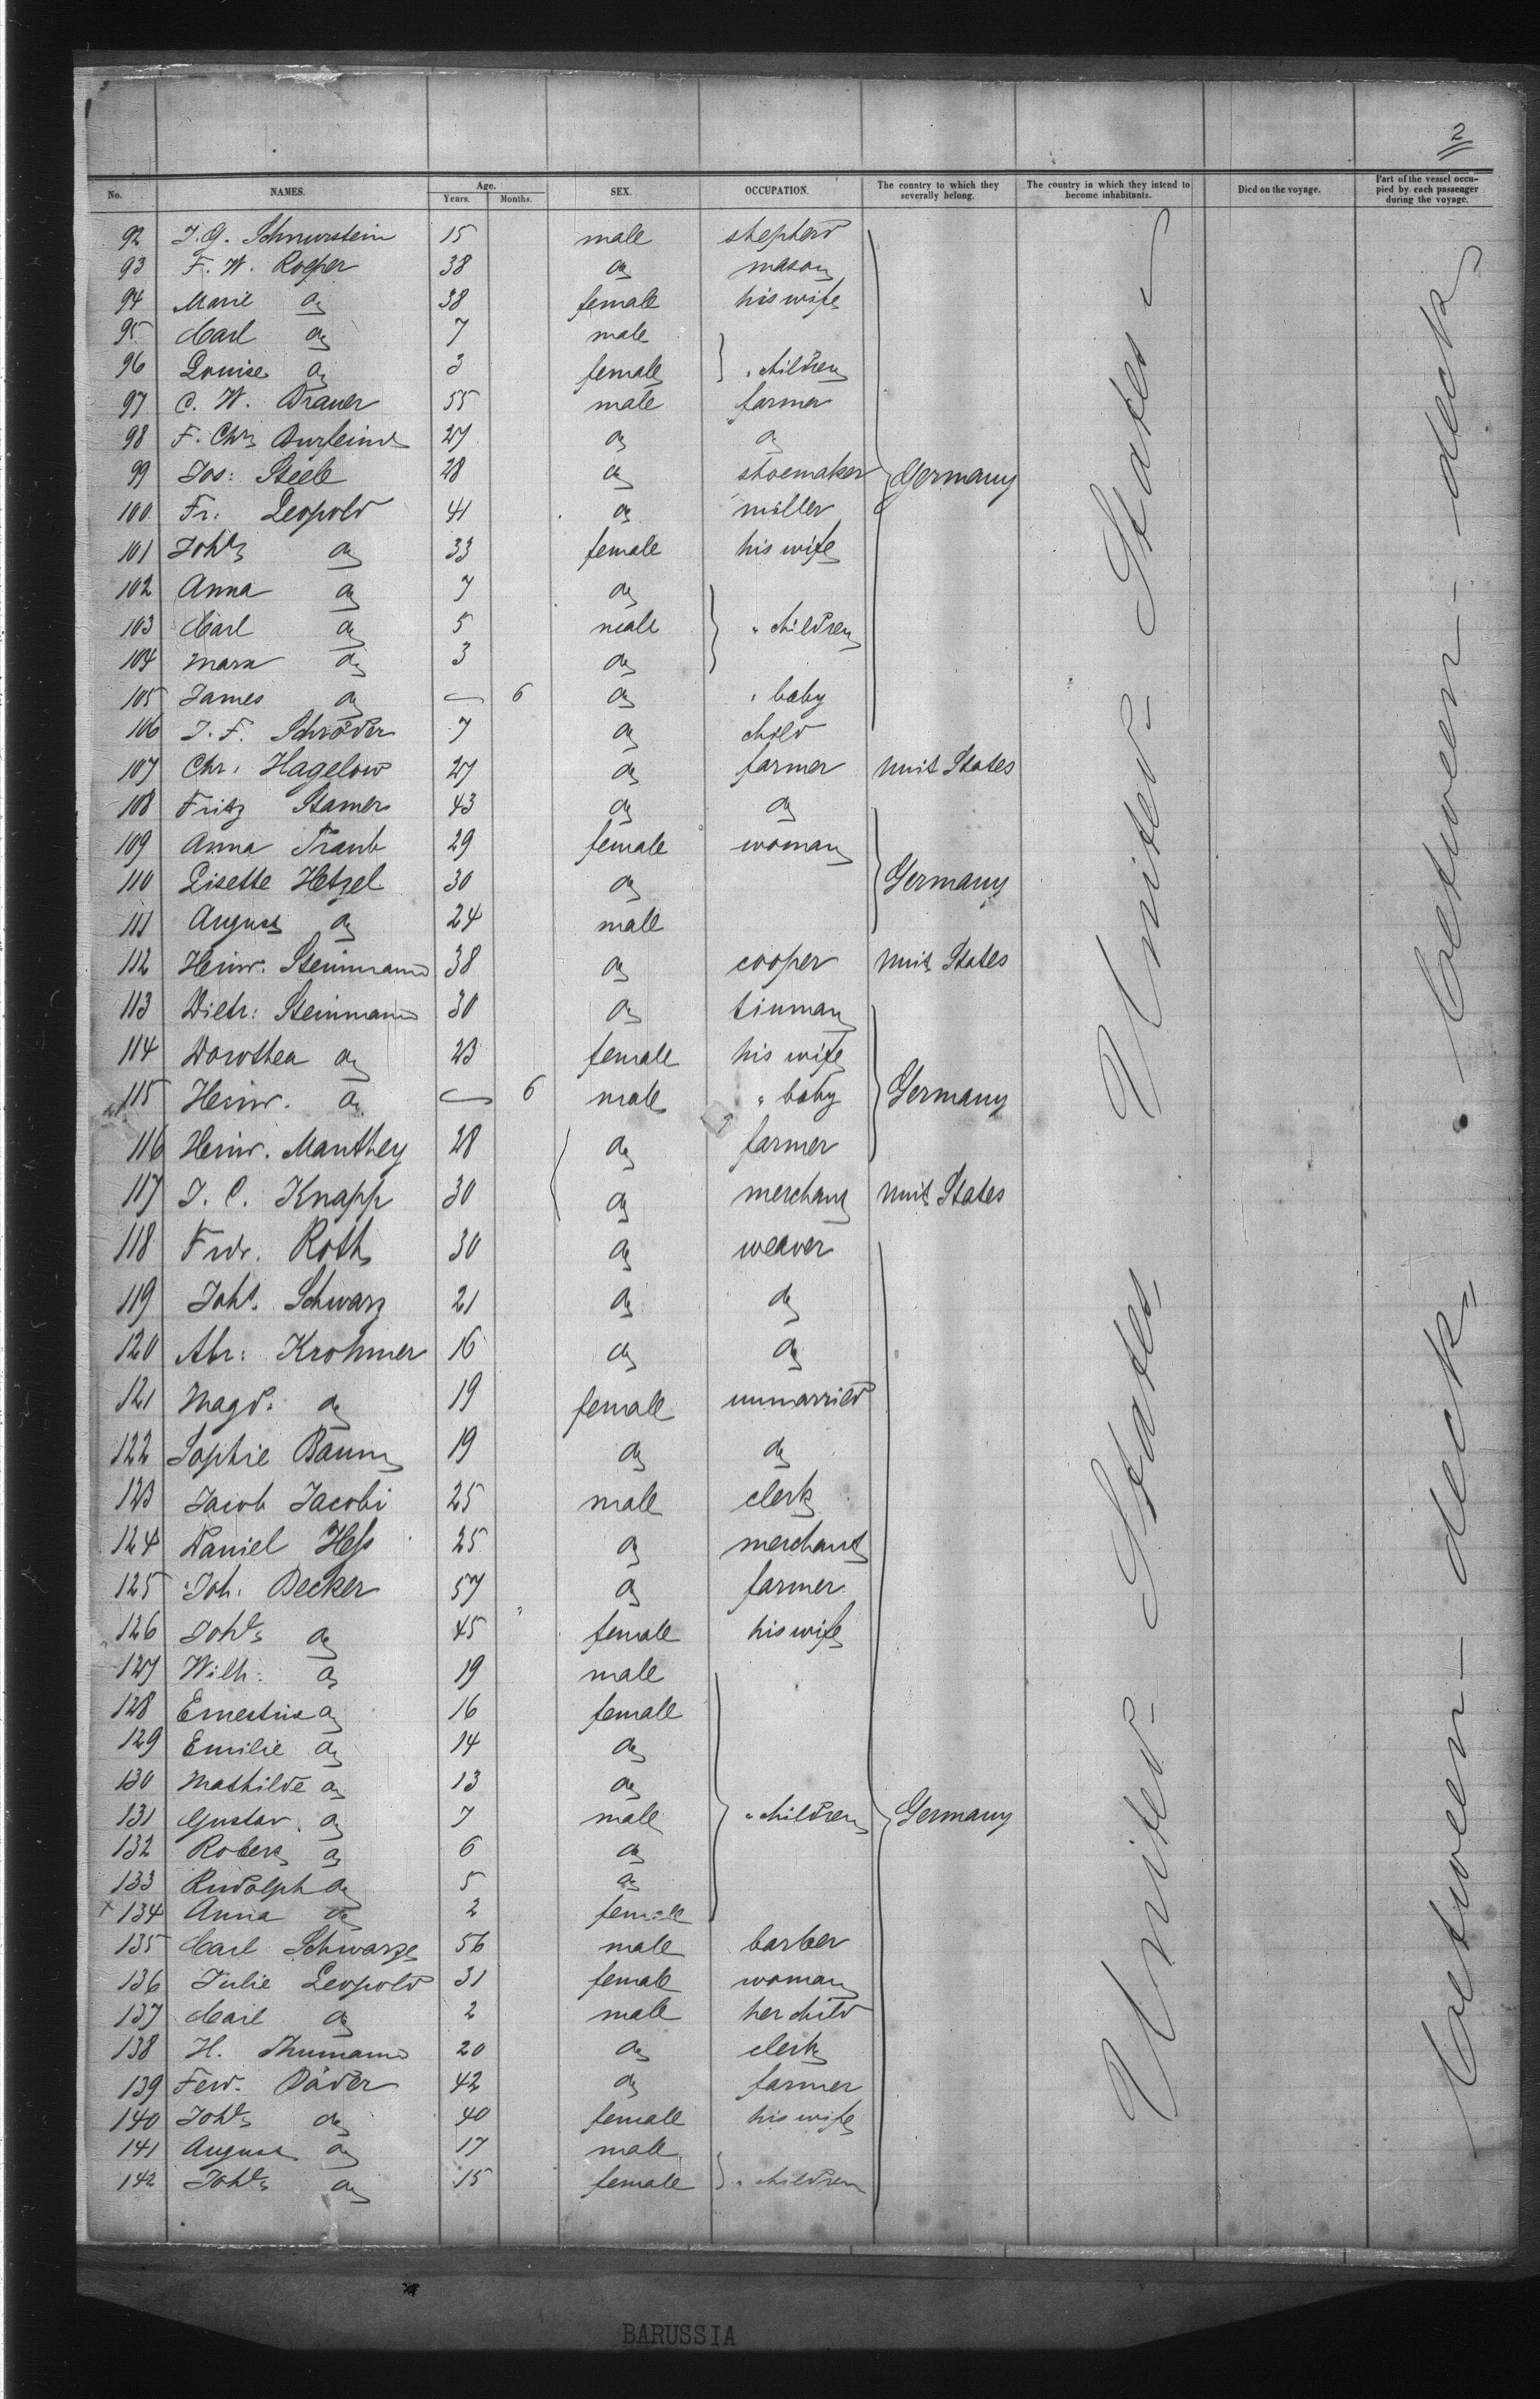 2
No. NAMES. Age. Years. Months. SEX. OCCUPATION. The country to which they severally belong. The country in which they intend to become inhabitants. Died on the voyage. Part of the vessel occupied by each passenger during the voyage.
92 J. G. Schnurstein 15 male shepherd
93 F. W. Roeper 38 do mason
94 Marie do 38 female his wife
95 Carl do 7 male
96 Louise do 3 female " children
97 C. W. Brauer 55 male farmer
98 F. Chr. Burfeind 27 do do
99 Jos: Steele 28 do shoemaker Germany
100 Fr: Leopold 41 do miller
101 Johe do 33 female his wife
102 Anna do 7 do
103 Carl do 5 male " children
104 Marx do 3 do
105 James do — 6 do " baby
106 J. F. Schröder 7 do child
107 Chr. Hagelow 27 do farmer Unit States
108 Fritz Stamer 43 do do
109 Anna Traub 29 female woman
110 Lisette Hetzel 30 do Germany
111 August do 24 male
112 Heinr. Steinmann 38 do cooper Unit States
113 Dietr: Steinmann 30 do tinman
114 Dorothea do 23 female his wife
115 Heinr. do — 6 male " baby Germany
116 Heinr. Manthey 28 do farmer
117 J. C. Knapp 30 do merchant Unit States
118 Frdr. Roth 30 do weaver
119 Johs. Schwarz 21 do do
120 Abr: Krohmer 16 do do
121 Magd: do 19 female unmarried
122 Sophie Baum 19 do do
123 Jacob Jacobi 25 male clerk
124 Daniel Hess 25 do merchant
125 Joh. Becker 57 do farmer
126 Johe do 45 female his wife
127 Wilh: do 19 male
128 Ernestine do 16 female
129 Emilie do 14 do
130 Mathilde do 13 do
131 Gustav do 7 male " children Germany
132 Robert do 6 do
133 Rudolph do 5 do
x 134 Anna do 2 female
135 Carl Schwarze 56 male barber
136 Julie Leopold 31 female woman
137 Carl do 2 male her child
138 H. Thumann 20 do clerk
139 Ferd. Däder 42 do farmer
140 Johe do 40 female his wife
141 August do 17 male
142 Johe do 15 female " children
United States
United States
between deck
between deck
BARUSSIA